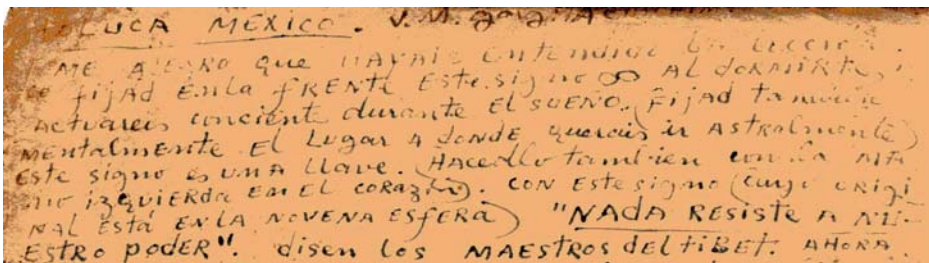 LUCA MEXICO. V.M.
ME ALEGRO que HAYAIS ENTENDIDO LA LECCION.
FIJAD EN LA FRENTE ESTE signo ∞ AL dORMIRTE,
ACTUAREIS conciente durante EL SUEÑO. FIJAD También
MENTALMENTE EL LUGAR A dONDE querais ir ASTRALMENTE
ESTE signo es UNA LLAVE. HACEdlo también con LA MA
NO IZQUIERDA EN EL CORAZON). CON ESTE signo (cuyo ORIGI
NAL ESTÁ EN LA NOVENA ESFERA) "NAdA RESISTE A NU-
ESTRO POdER". disEN LOS MAESTROS dEL TIBET. AHORA